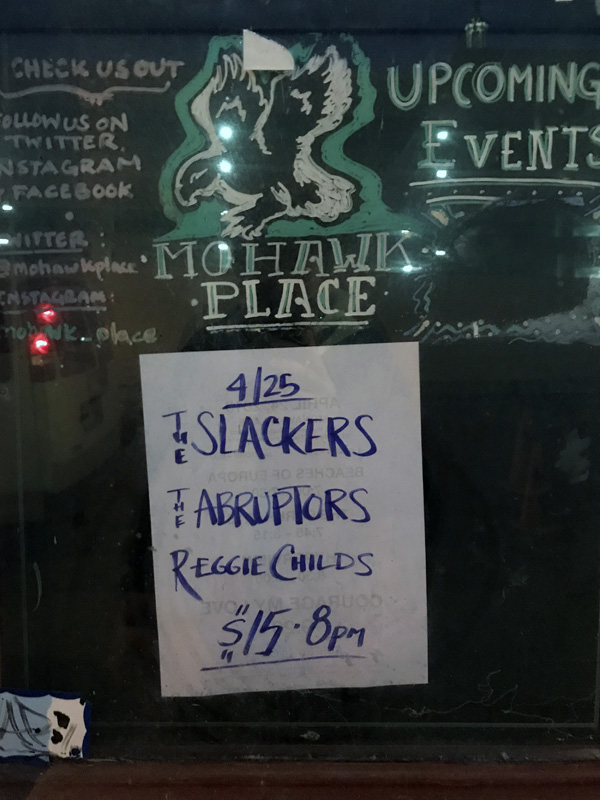 CHECK US OUT
FOLLOW US ON
TWITTER,
INSTAGRAM
FACEBOOK
TWITTER:
@mohawkplace
INSTAGRAM:
mohawk_place
MOHAWK
PLACE
UPCOMING
EVENTS
4/25
THE SLACKERS
THE ABRUPTORS
REGGIE CHILDS
$15 · 8PM
BEACHES OF EUROPA
COURAGE MY LOVE